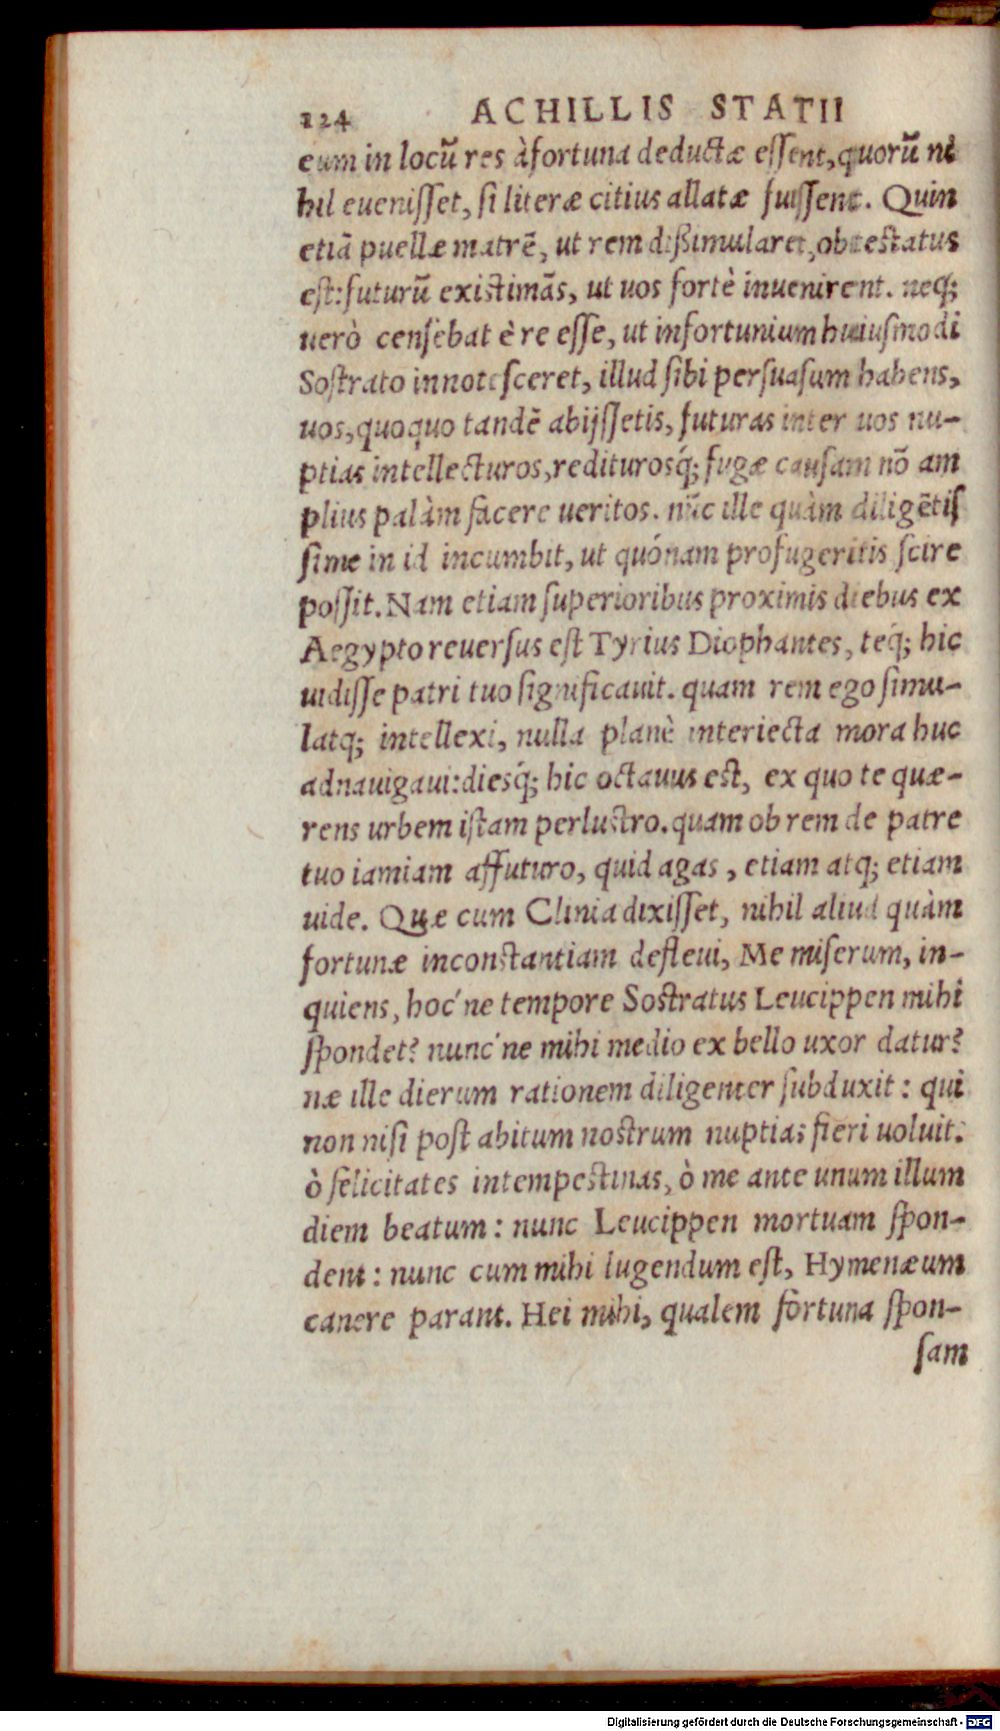 124 ACHILLIS STATII
eum in locũ res à fortuna deductæ eſſent, quorũ ni
hil eueniſſet, ſi literæ citius allatæ fuiſſent. Quin
etiã puellæ matrẽ, ut rem dißimularet, obteſtatus
eſt: futurũ exiſtimãs, ut uos fortè inuenirent. neq;
uerò cenſebat è re eſſe, ut infortunium huiuſmodi
Soſtrato innoteſceret, illud ſibi perſuaſum habens,
uos, quoquo tandẽ abijſſetis, futuras inter uos nu-
ptias intellecturos, rediturosq́; fugæ cauſam nõ am
plius palàm facere ueritos. nũc ille quàm diligẽtiſ
ſime in id incumbit, ut quónam profugeritis ſcire
poſſit. Nam etiam ſuperioribus proximis diebus ex
Aegypto reuerſus eſt Tyrius Diophantes, teq́; hic
uidiſſe patri tuo ſignificauit. quam rem ego ſimu-
latq; intellexi, nulla planè interiecta mora huc
adnauigaui: diesq́; hic octauus eſt, ex quo te quæ-
rens urbem iſtam perluſtro. quam ob rem de patre
tuo iamiam affuturo, quid agas, etiam atq; etiam
uide. Quæ cum Clinia dixiſſet, nihil aliud quàm
fortunæ inconſtantiam defleui, Me miſerum, in-
quiens, hoc'ne tempore Soſtratus Leucippen mihi
ſpondet? nunc'ne mihi medio ex bello uxor datur?
næ ille dierum rationem diligenter ſubduxit: qui
non niſi poſt abitum noſtrum nuptias fieri uoluit.
ò felicitates intempeſtiuas, ò me ante unum illum
diem beatum: nunc Leucippen mortuam ſpon-
dent: nunc cum mihi lugendum eſt, Hymenæum
canere parant. Hei mihi, qualem fortuna ſpon-
ſam
Digitalisierung gefördert durch die Deutsche Forschungsgemeinschaft - DFG